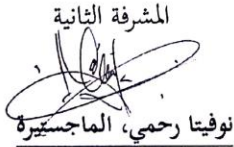 المشرفة الثانية
نوفيتا رحمي، الماجستيرة